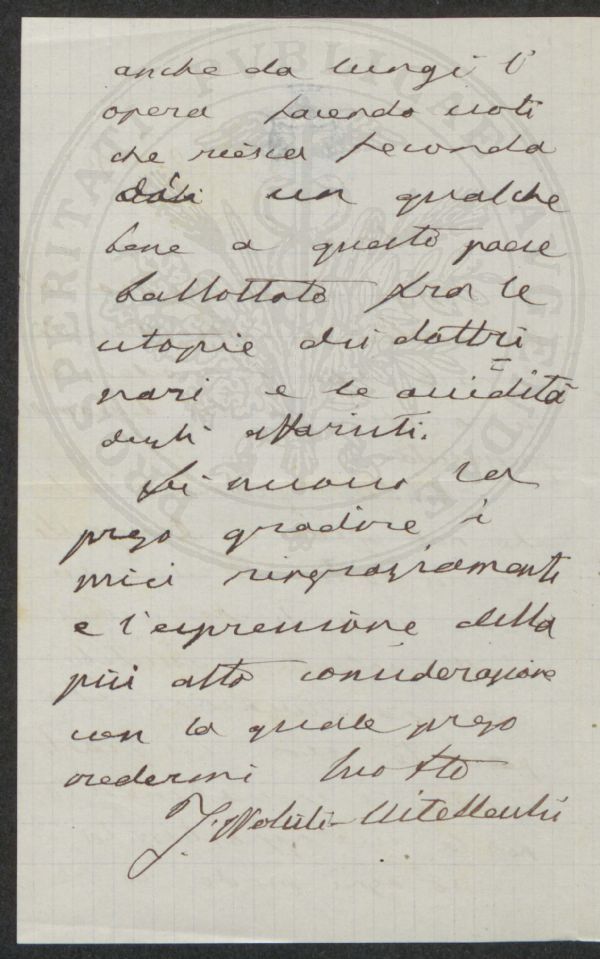 anche da lungi l'
opera facendo voti
che riesca feconda
di un qualche
bene a questo paese
ballottato fra le
utopie dei dottri
nari e le avidità
degli affaristi.
Di nuovo la
prego gradire i
miei ringraziamenti
e l'espressione della
più alta considerazione
con la quale prego
credermi Suo
Nobili-Vitelleschi
PROSPERITATI PVBLICAE AVGENDAE